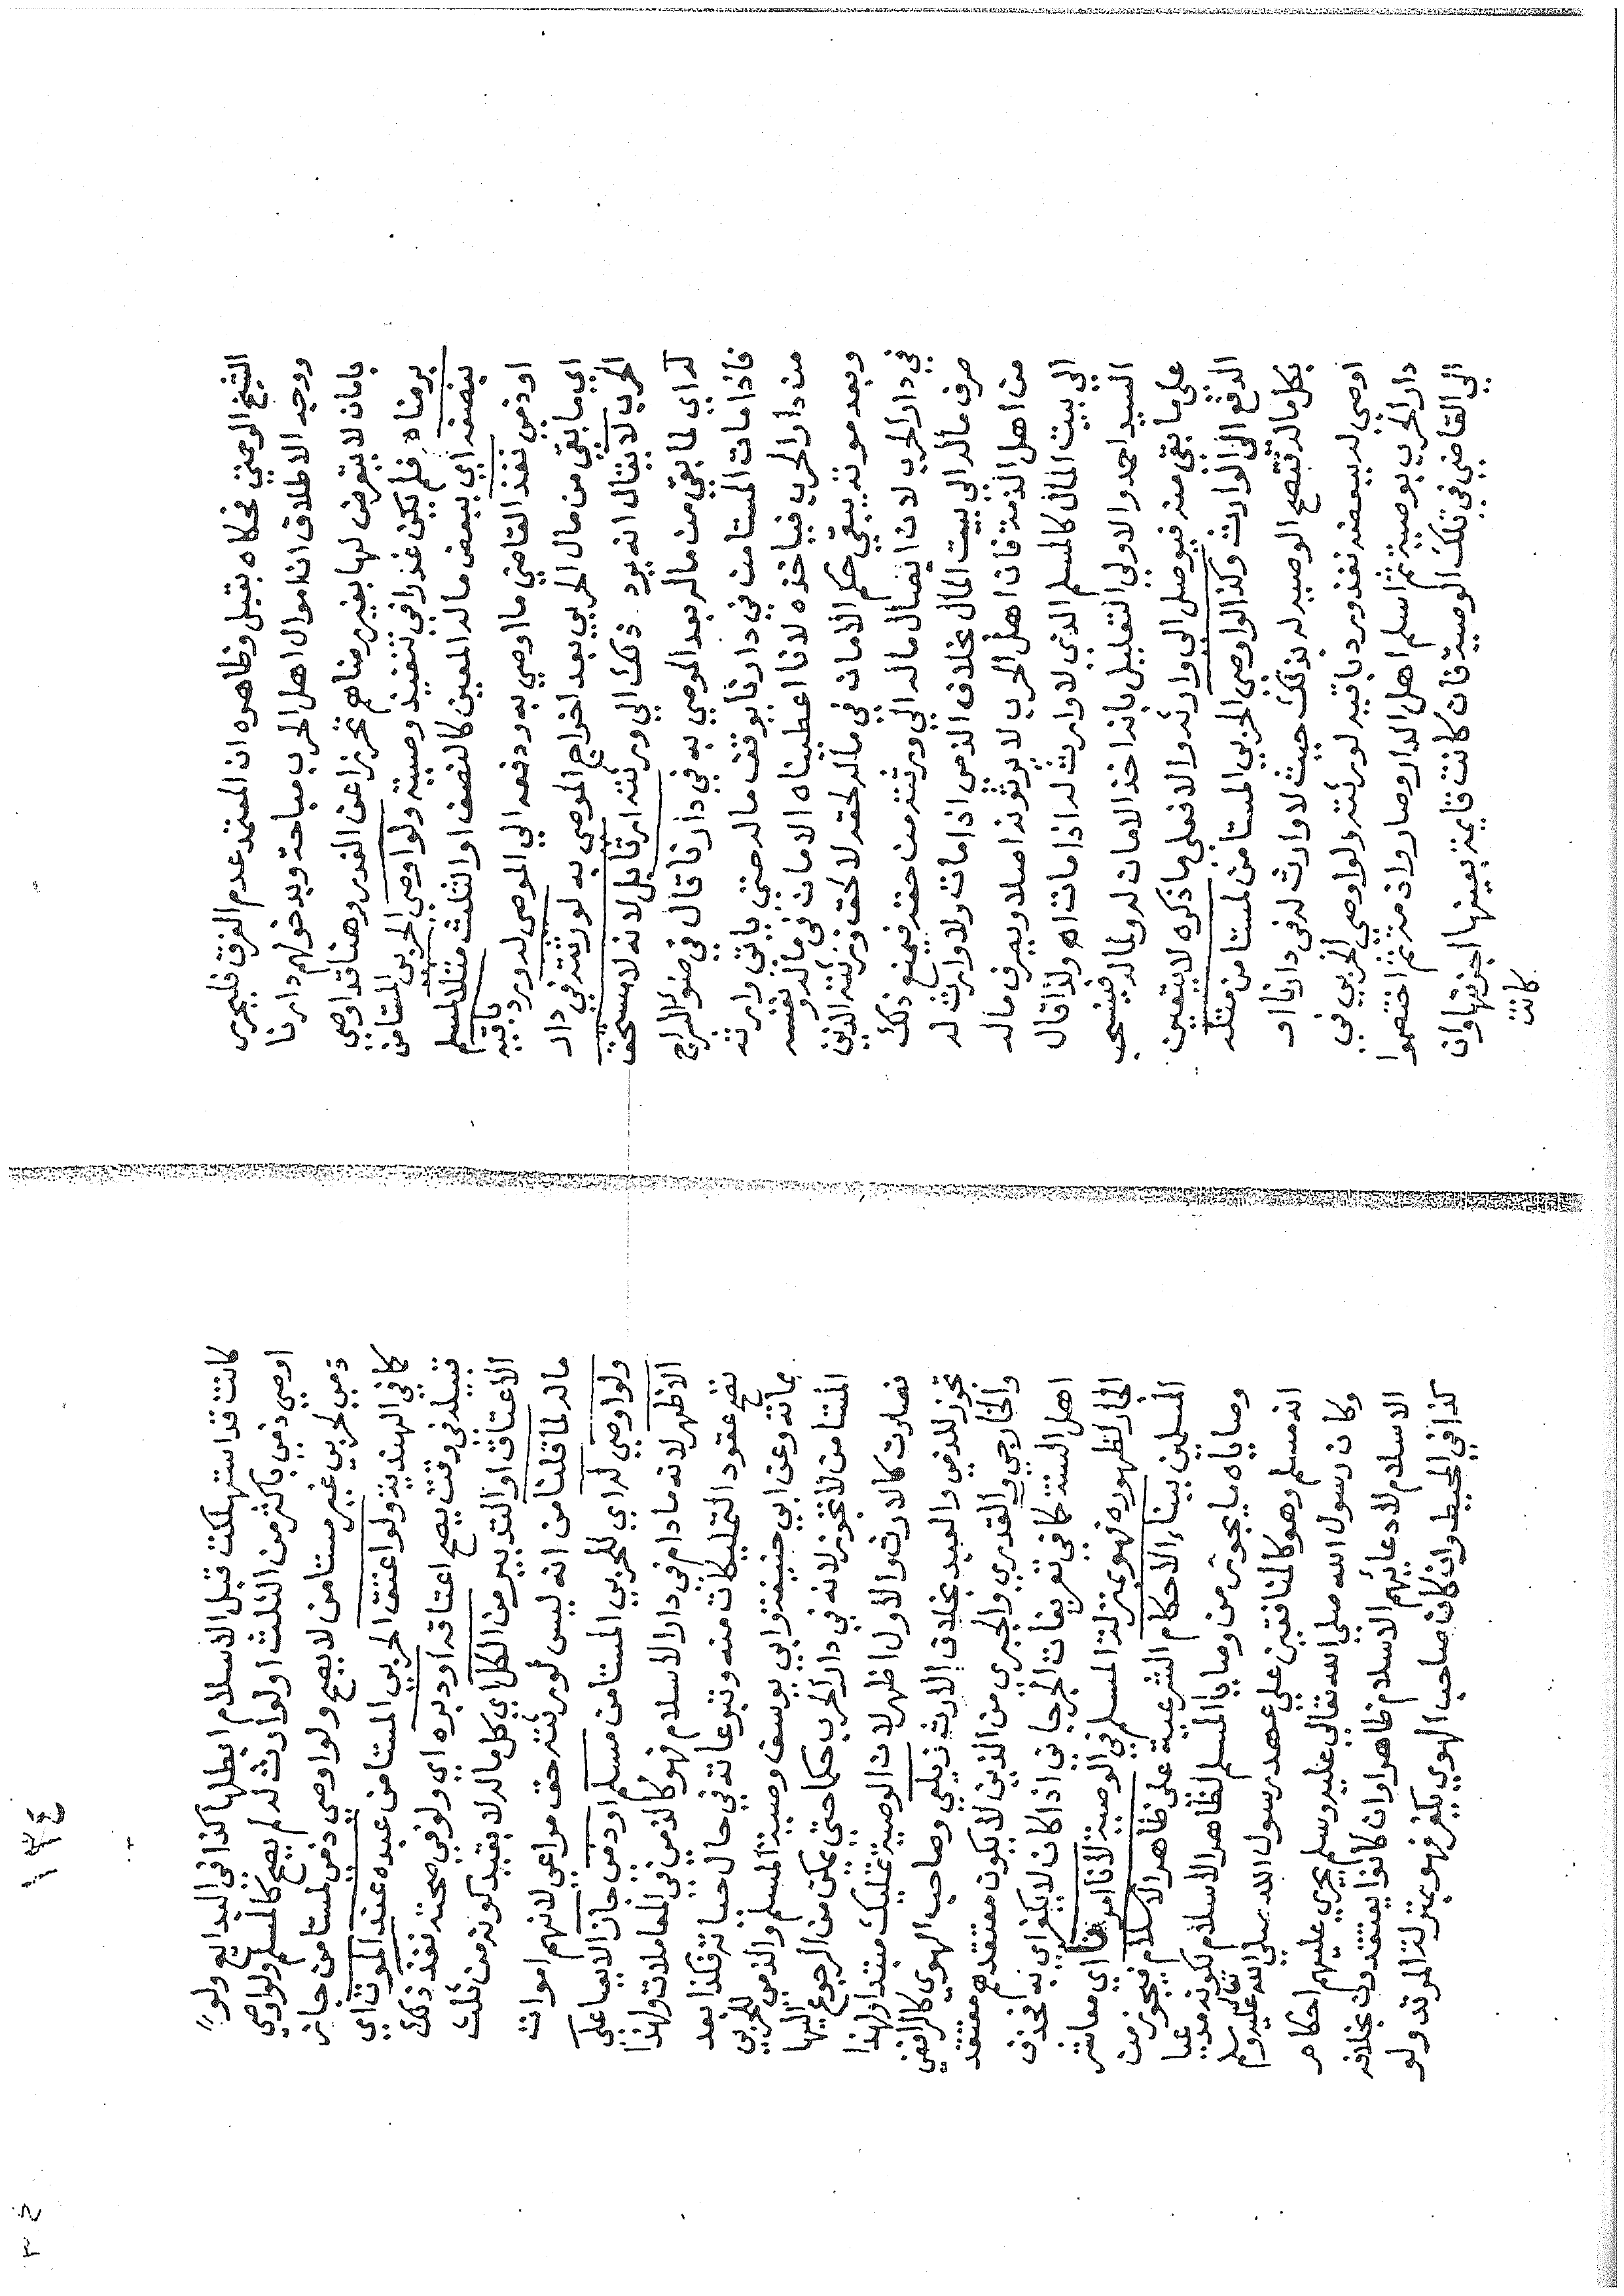 الشيخ الرحمتي فحكاه بقيل وظاهره ان المعتمد عدم الفرق فليحرر
ووجه الاطلاق ان اموال اهل الحرب مباحة وبدخولهم دارنا
بامان لا يتعرض لها بغير رضاهم تحرزا عن الغدر وهنا قد اوصي
برضاه فلم يكن غدرا في تنفيذ وصيته ولو اوصي الحربي المستامن
بنصفه اي ببعض ماله المعين كالنصف او الثلث مثلا لمسلم
او ذمي نفذ القاضي ما اوصي به ودفعه الي الموصى له ورد باقيه
اي ما بقي من مال الحربي بعد اخراج الموصي به لورثته في دار
الحرب لا يقال انه يرد ذلك الي ورثته ارثا بل لانه لا مستحق
له اي لما بقي من ماله بعد الموصي به في دارنا قال في ضوء السراج
فاذا مات المستامن في دارنا يوقف ماله حتي ياتي وارثه
من دار الحرب فياخذه لانا اعطيناه الامان في ماله ونفسه
وبعد موته يبقي حكم الامان في ماله لحقه لا لحق ورثته الذين
في دار الحرب لان ايصال ماله الي ورثته من حقه فيمنع ذلك
صرف ماله الي بيت المال بخلاف الذمي اذا مات ولا وارث له
من اهل الذمة فان اهل الحرب لا يرثونه اصلا ويصرف ماله
الي بيت المال كالمسلم الذي لا وارث له اذا مات اه ولذا قال
السيد احمد والاولي التعليل بانه اخذ الامان له ولماله فينسحب
على ما بقي منه فيوصل الي وارثه والا فعلى ما ذكره لا يتعين
الدفع الي الوارث وكذا لو اوصى الحربي المستامن لمستامن مثله
بكل ماله فتصح الوصيه له بذلك حيث لا وارث له في دارنا او
اوصى له ببعضه نفذ ورد باقيه لورثته ولو اوصي الحربي في
دار الحرب بوصية ثم اسلم اهل الدار وصاروا ذمة ثم اختصموا
الي القاضي في تلك الوصية فان كانت قايمة بعينها اجزتها وان
كانت
١٣٤
كانت قد استهلكت قبل الاسلام ابطلها كذا في البدايع ولو
اوصي ذمي باكثر من الثلث او لوارث له لم يصح كالمسلم ولو اوصي
ذمي لحربي غير مستامن لا يصح ولو اوصي ذمي لمستامن جايز
كما في الهنديه ولو اعتق الحربي المستامن عبده عند الموت اي
قبيله في وقت يصح اعتاقه او دبره اي ولو في صحته نفذ ذلك
الاعتاق او التدبير من الكل اي كل ماله لا بقيد كونه من ثلث
ماله لما قلنا من انه ليس لورثته حق مراعي لانهم اموات
ولو اوصي له اي للحربي المستامن مسلم او ذمي جاز الايصا على
الاظهر لانه ما دام في دار الاسلام فهو كالذمي في المعاملات ولهذا
تصح عقود التمليكات منه وتبرعاته في حال حياته فكذا بعد
مماته وعن ابي حنيفة وابي يوسف وصية المسلم والذمي للحربي
المستامن لا تجوز لانه في دار الحرب حكما حتي يمكن من الرجوع اليها
فصارت كالارث والاول اظهر لان الوصية تمليك مبتدا ولهذا
تجوز للذمي والعبيد بخلاف الارث زيلعي وصاحب الهوي كالرافضي
والخارجي والقدري والجبري من الذين لا يكون معتقدهم معتقد
اهل السنة كما في تعريفات الجرجاني اذا كان لا يكفر اي به فحذف
الجار لظهوره فهو بمنزلة المسلم في الوصية لانا امرنا اي معاشر
المسلمين ببناء الاحكام الشرعية على ظاهر الاسلام فيجوز من
وصاياه ما يجوز من وصايا المسلم لظاهر الاسلام لكونه مدعيا
انه مسلم وهو كالمنافقين علي عهد رسول الله صلي الله تعالي عليه وسلم
وكان رسول الله صلي الله تعالي عليه وسلم يجري عليهم احكام
الاسلام لادعائهم الاسلام ظاهرا وان كانوا يعتقدون بخلافه
كذا في المحيط وان كان صاحب الهوي يكفر فهو بمنزلة المرتد ولو